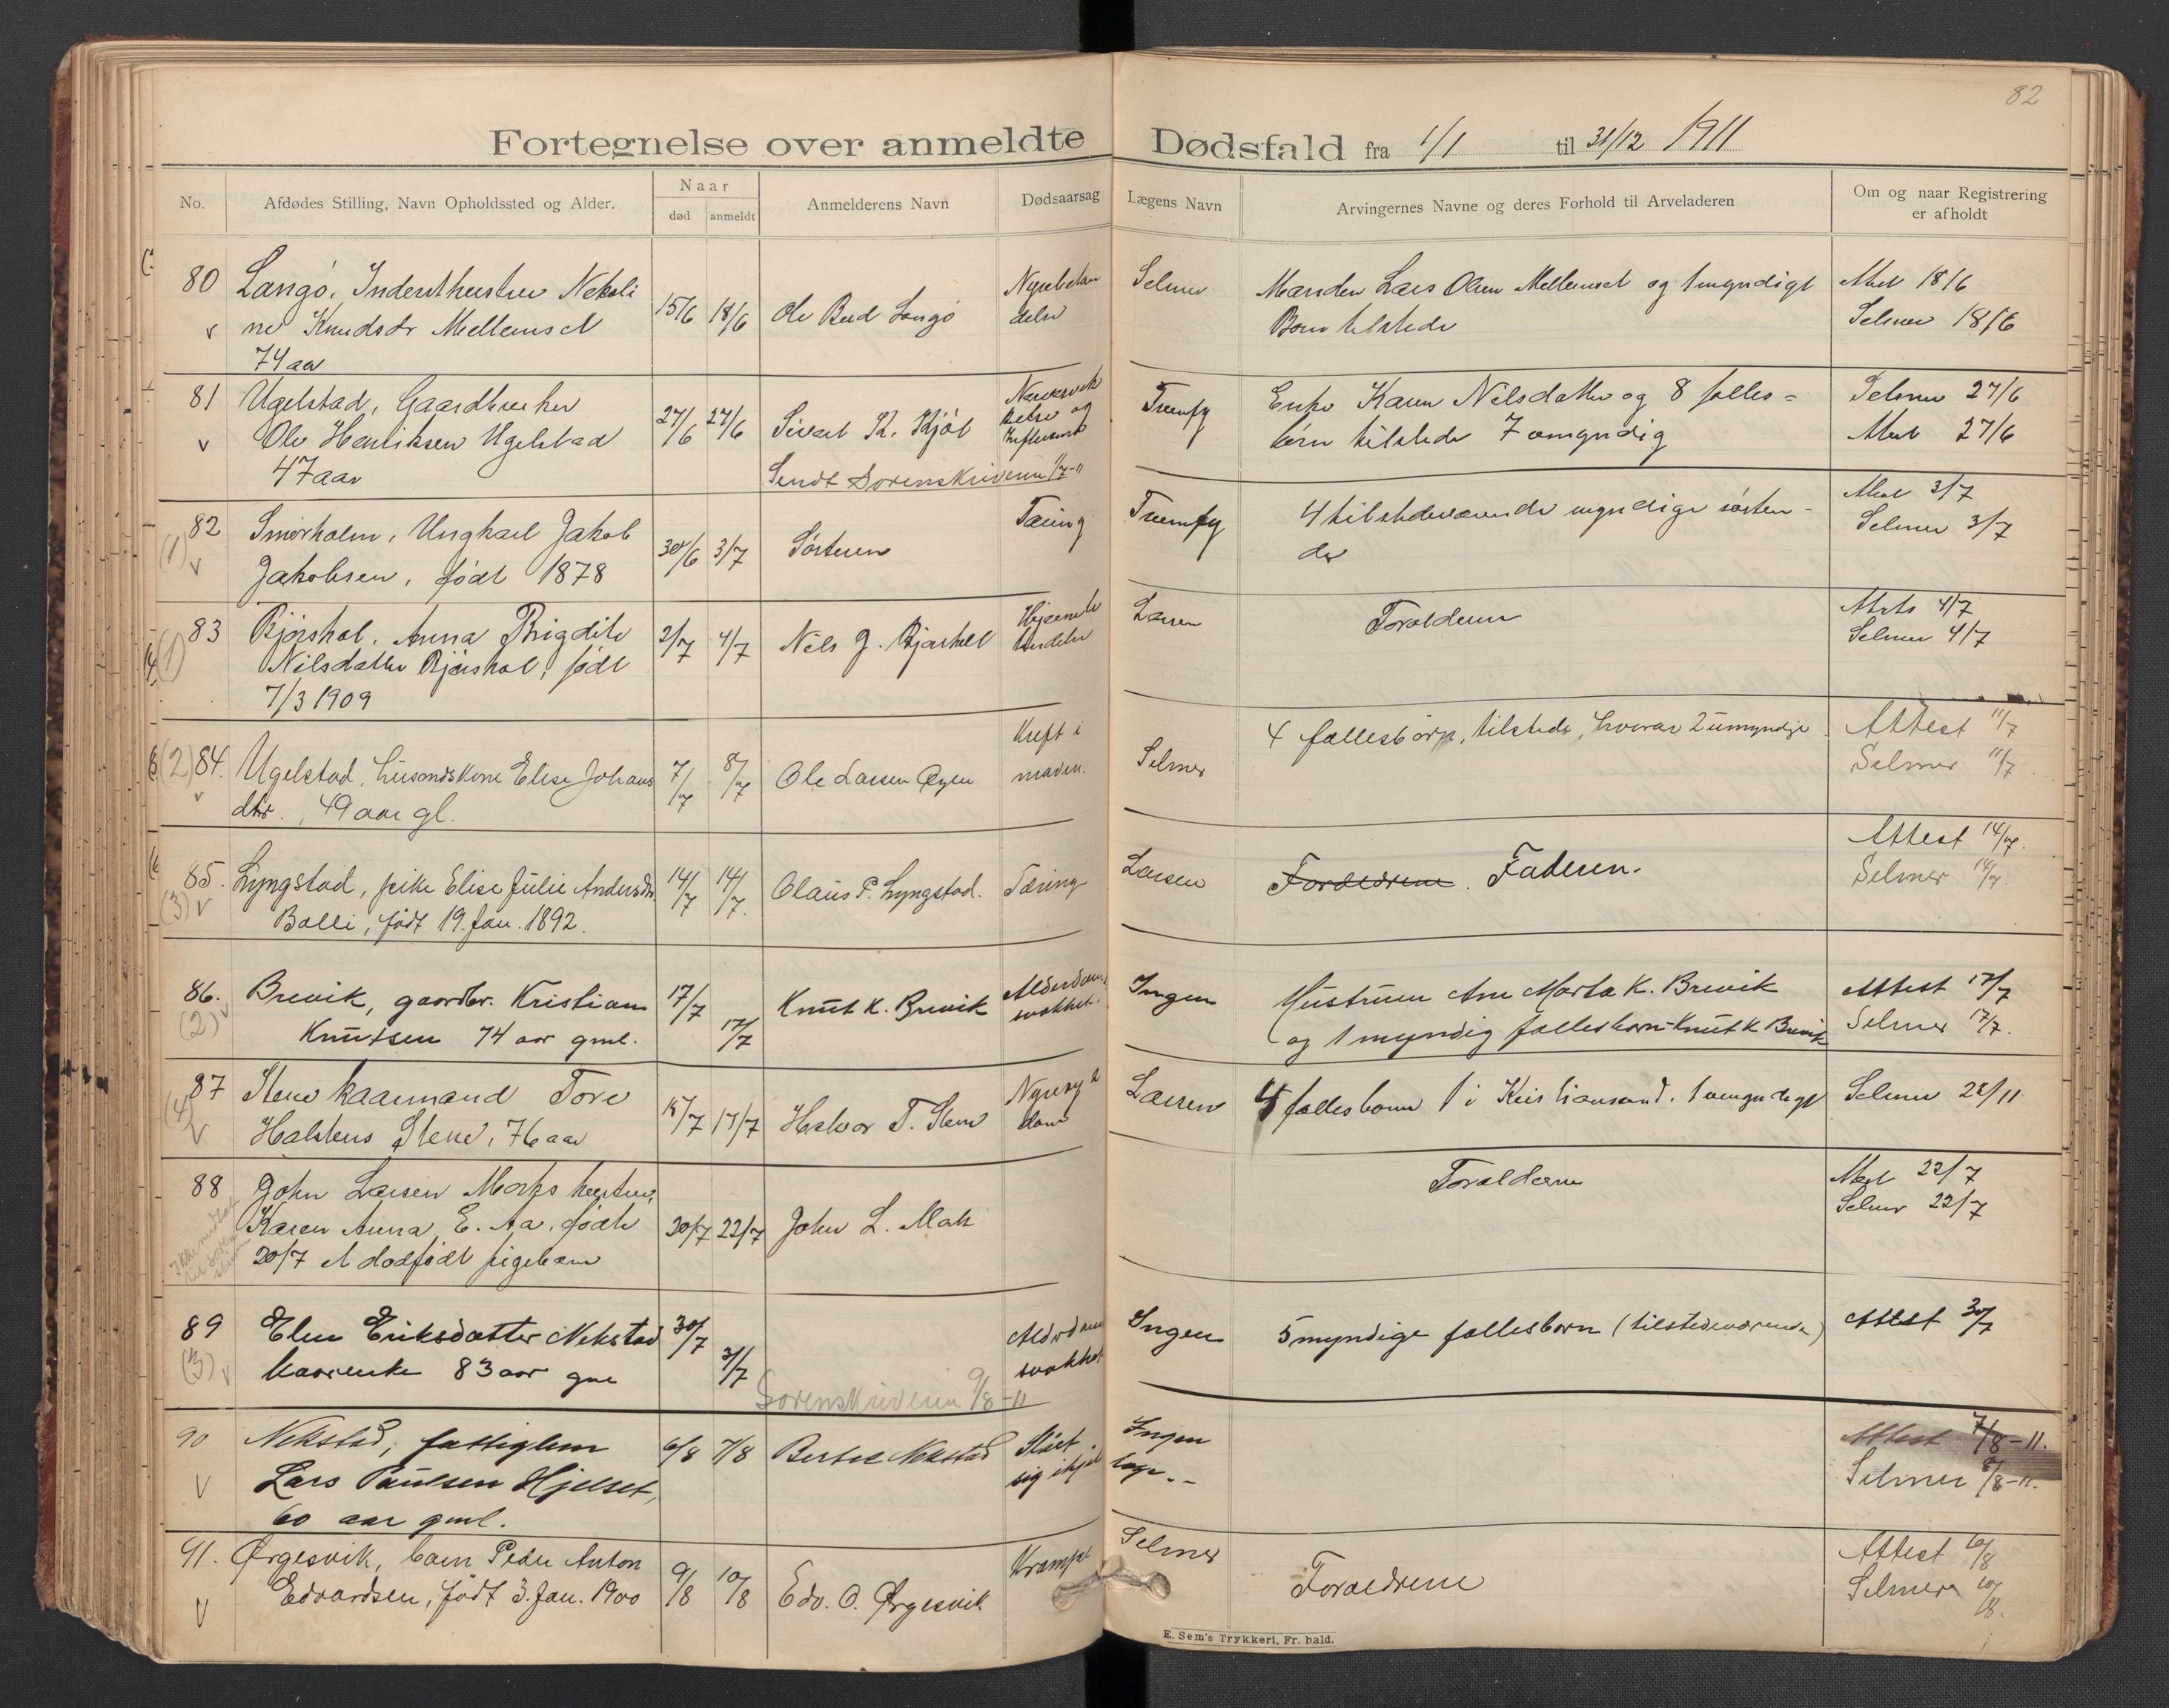 82
Fortegnelse over anmeldte Dødsfald fra 1/1 til 31/12 1911
No.
Afdødes Stilling, Navn Opholdssted og Alder.
Naar
død
anmeldt
Anmelderens Navn
Dødsaarsag
Lægens Navn
Arvingernes Navne og deres Forhold til Arveladeren
Om og naar Registrering
er afholdt
80
Langö, Inderst
ne Knudsdr Mellemset
74 aar
15/6
18/6
Ole Langö
Selmer
Manden Lars Olsen Mellemset og 1 myndigt
Barn tilstede
18/6
Selmer 18/6
81
v
Ugelstad, Gaardbruker
Ole Henriksen Ugelstad
47 aar
27/6
27/6
Sivert K. Kjöl
Sendt Sorenskriveren 1/7-11
og
Enke Karen Nilsdatter og 8 fælles=
børn tilstede 7 umyndig
Selmer 27/6
27/6
82
(1)
v
Smörholm, Ungkarl Jakob
Jakobsen, födt 1878
30/6
3/7
Søsteren
Tæring
4 tilstedeværende myndige søsken-
de
3/7
Selmer 3/7
83
(1)
Anna
Nilsdatter födt
7/3 1909
2/7
4/7
Nils J.
Larsen
Forældrene
4/7
Selmer 4/7
(2) 84.
v
Ugelstad, husmandskone Elise Johans
dtr., 49 aar gl.
7/7
8/7
Ole Larsen Øyen
Kreft i
maven.
Selmer
4 fællesbörn, tilstede, hvorav 2 umyndige.
Attest 11/7
Selmer 11/7
85.
(3) v
Lyngstad, pike Elise Julie Andersdtr
Bolli, født 19. Jan. 1892.
14/7
14/7.
Olaus P. Lyngstad.
Tæring
Larsen
Forældrene. Faderen.
Attest 14/7.
Selmer 14/7.
86.
(2) v
Brevik, gaardbr. Kristian
Knutsen 74 aar gml.
17/7
17/7
Knut K. Brevik
Alderdoms
svakhet.
Ingen
Hustruen Ane Marta K. Brevik
og 1 myndig fællesbarn-Knut K Brevik
Attest 17/7
Selmer 17/7.
87
(4)
v
Stene kaarmand Tore
Halstens Stene, 76 aar
15/7
17/7
Halvor T. Stene
Nyresyk
dom
Larsen
fællesbørn 1 i Kristiansund. 1 umyndigt
Selmer 22/11
88
John Larsen Maks hustru,
Karen Anna E. Aa. fødte
20/7 et dødfødt pigebarn
20/7
22/7
John L. Mak
Forældrene
22/7
Selmer 22/7
89
(3) v
Elen Eriksdatter Nekstad
kaarenke 83 aar gml
30/7
31/7
Sorenskriveren 9/8-11
Alderdoms
svakhet
Ingen
5 myndige fællesbørn (tilstedeværende)
Attest 30/7
90
V
Nekstad, fattiglem
Lars Paulsen Hjelset,
60 aar gml.
6/8
7/8
Bertel Nekstad
Slået
sig ihjel
Ingen
læge.-
Attest 7/8-11.
Selmer 8/8-11.
91.
V
Ørgesvik, barn Peder Anton
Edvardsen, født 3. Jan. 1900
9/8
10/8
Edv. O. Ørgesvik
Krampe
Selmer
Forældrene
Attest 10/8
Selmer 10/8.
E. Sem's Trykkeri, Fr.hald.